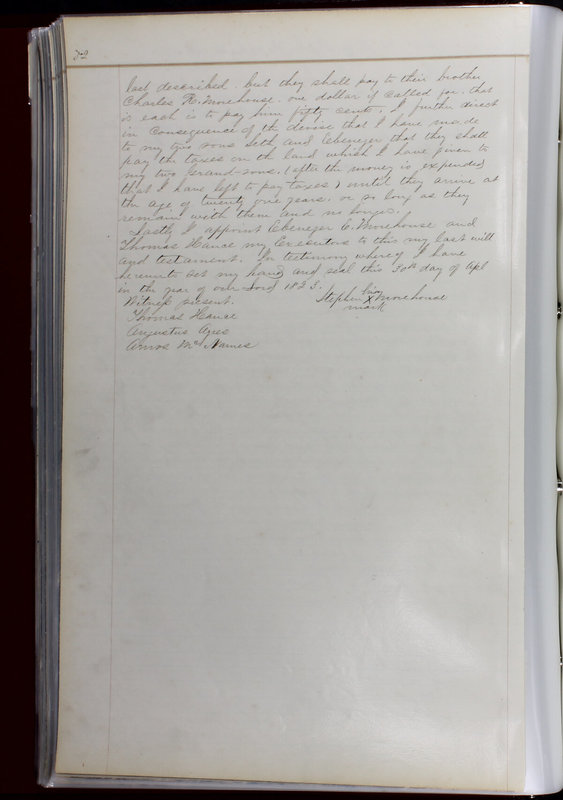 72
last described. but they shall pay to their brother
Charles R. Morehouse. one dollar if called for. that
is each is to pay him fifty cents. I further direct
in consequence of the devise that I have made
to my two sons Seth and Ebenezer that they shall
pay the taxes on the land which I have given to
my two grand-sons, (after the money is expended
that I have left to pay taxes) until they arrive at
the age of twenty one years. or so long as they
remain with them and no longer.
Lastly I appoint Ebenezer C. Morehouse and
Thomas Hance my Executors to this my last will
and testament. In testimony whereof I have
hereunto set my hand and seal this 30th day of Apl
in the year of our Lord 1823.
Witness present. Stephen his X Morehouse
mark
Thomas Hance
Augustus
Amos